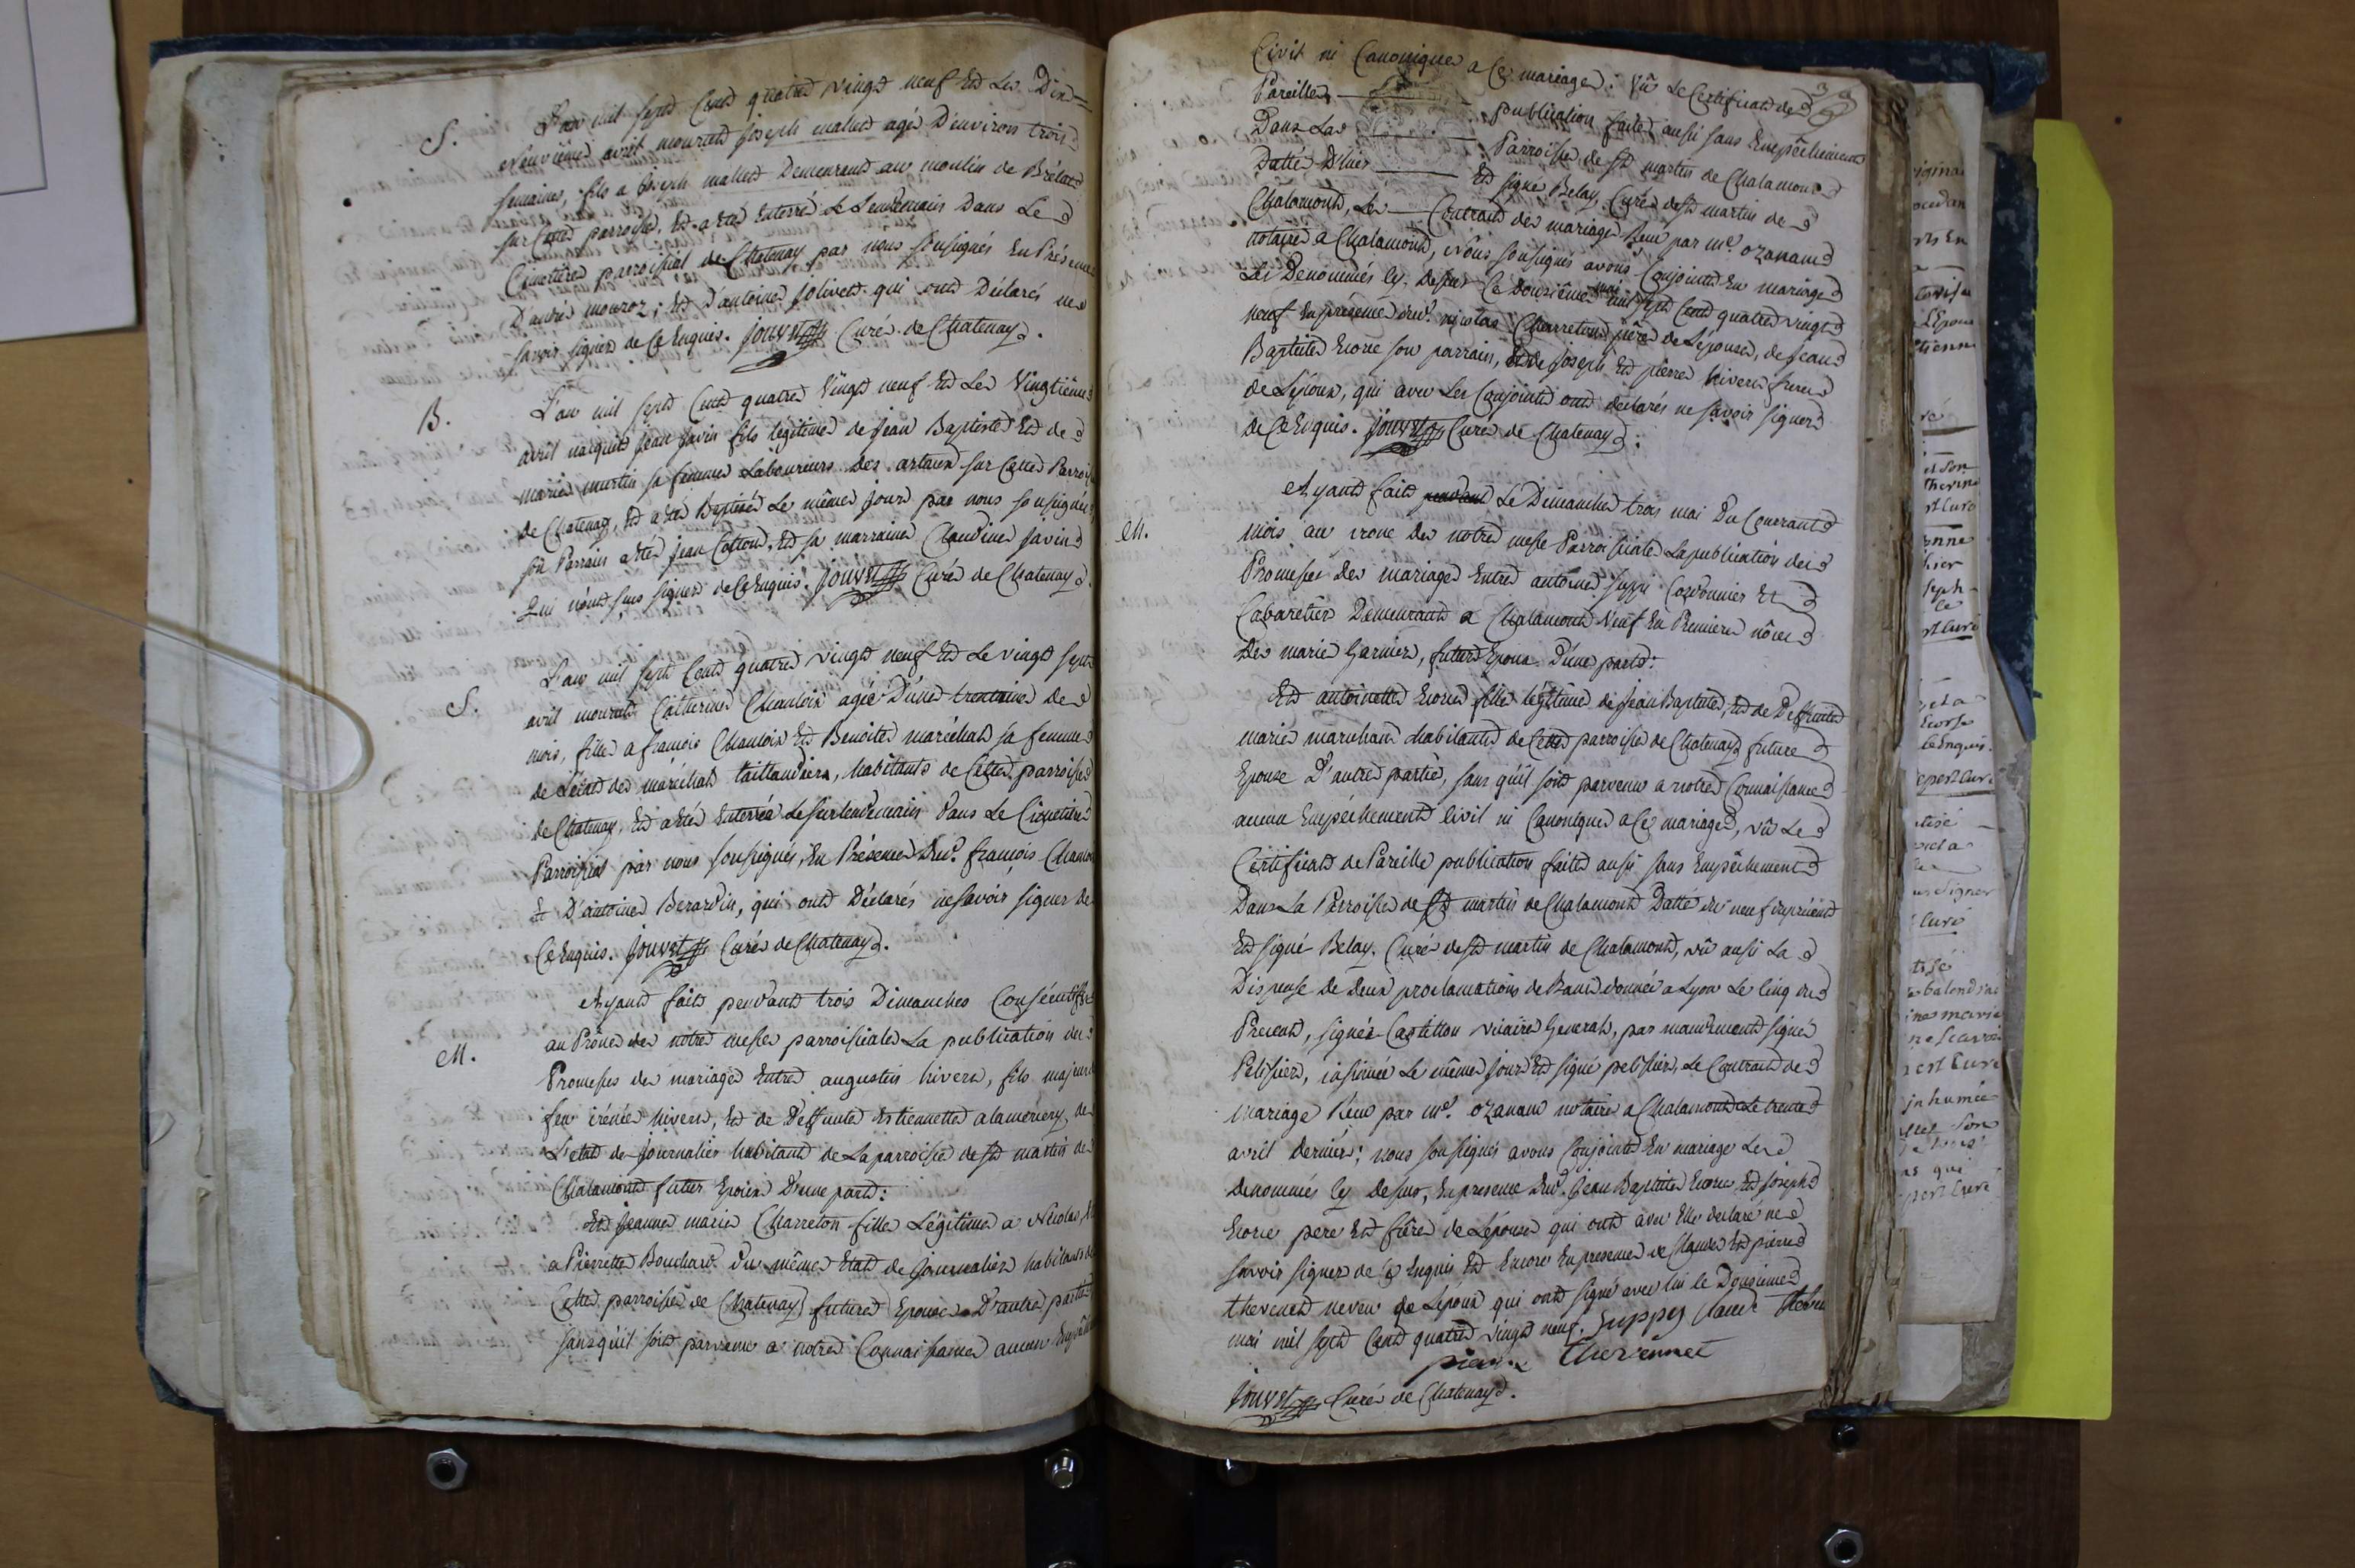 S.
L'an mil sept Cent quatre vingt neuf Et Le Dix=
Neuvième avril mourut joseph mallet agé D'environ trois
semaines, fils a joseph mallet Demeurant au moulin de
sur Cette parroisse, Et a été Enterré Le Lendemain Dans Le
Cimetière parroissial de Chatenay par nous soussignés En Présence
D'andré mouroz; Et D'antoine jolivet qui ont Déclarés ne
savoir signer de Ce Enquis. jouvet Curé de Chatenay.
B.
L'an mil sept Cent quatre Vingt neuf Et Le Vingtième
avril naquit jean javin fils légitime de jean Baptiste Et de
marie murtin sa femme Laboureurs des artaux sur Cette Parroisse
de Chatenay, Et a été Baptisé Le même jour par nous soussignés
son Parrain a été jean Cottond, Et sa marraine Claudine javin
Qui n'ont sus signer de Ce Enquis. jouvet Curé de Chatenay.
S.
L'an mil sept Cent quatre vingt neuf Et Le vingt sept
avril mourut Catherine Chauloix agée D'une trentaine de
mois, fille a françois Chauloix Et Benoite maréchal sa femme
de L'état de maréchal taillandier, habitants de Cette parroisse
de Chatenay, Et a été Enterréa Le surlendemain Dans Le Cimetière
Parroissial par nous soussignés, En Présence Dud. françois
Et D'antoine Berardin, qui ont Déclarés ne savoir signer de
Ce Enquis. jouvet Curé de Chatenay.
M.
Ayant fait pendant trois Dimanches Consécutifs
au Prône de notre messe parroissiale La publication des
Promesses de mariage Entre augustin hivert, fils majeur
feu irénée hivert, Et de Deffunte Estiennette alamerery, de
L'état de journalier habitant de La parroisse de St martin de
Chalamont futur Epoux D'une part:
Et jeanne marie Charreton fille Légitime a Nicolas, Et
a Pierrette Bouchard du même Etat de journalier habitans de
Cette parroisse de Chatenay future Epouse D'autre partie
sans qu'il soit parvenu a notre Connaissance aucun
Civil ni Canonique a Ce mariage: Vû Le Certificat de
Pareille publication faite aussi sans Empêchement
Dans La Parroisse de St martin de Chalamont
Datté D'hier Et signé Belay, Curé de St martin de
Chalamont, Le Contrat de mariage Reçu par me. ozanam
notaire a Chalamont, Nous soussignés avons Conjoint En mariage
Les Dénommés Cy Dessus Ce Douzième mai mil sept Cent quatre vingt
neuf En présence dud. nicolas Charreton père de L'épouse, de jean
Baptiste Ecorse son parrain, Et de joseph Et pierre hivert freres
de L'époux, qui avec Les Conjoints ont declarés ne savoir signer
de Ce Enquis. jouvet Curé de Chatenay.
M.
Ayant fait pendant Le Dimanche trois mai Du Courrant
mois au prone de notre messe Parroissiale La publication des
Promesses de mariage Entre antoine suppi Cordonnier Et
Cabaretier Demeurant a Chalamont Veuf En Premiere nôces
De marie Garnier, futur Epoux D'une part:
Et antoinette Ecorse fille légitime de jean Baptiste, Et de Deffunte
marie marechand habitants de Cette parroisse de Chatenay future
Epouse D'autre partie, sans qu'il soit parvenu a notre Connaissance
aucun Empéchement Civil ni Canonique a Ce mariage, vû Le
Certificat de Pareille publication faite aussi sans Empêchement
Dans La Parroisse de St martin de Chalamont Datté du neuf du présent
Et signé Belay. Curé de St martin de Chalamont, vû aussi La
Dispense de Deux proclamations de Bans donnée a Lyon Le Cinq du
Présent, signée Castillon vicaire General, par mandement signé
Pelissier, insinuée Le même jour Et signé pelissier, Le Contract de
mariage Reçu par me. ozanam notaire a Chalamont Le trente
avril dernier; nous soussignés avons Conjoint En mariage Les
dénommés Cy Dessus, En presence Dud. jean Baptiste Ecorse, Et joseph
Ecorse pere Et frère de L'épouse qui ont avec Elle déclaré ne
savoir signer de Ce Enquis Et Encore En presence de Claude Et pierre
thevenet neveu de L'époux qui ont signé avec lui le Douzieme
mai mil sept Cent quatre vingt neuf. Suppy Claude
pierre Thevennet
Jouvet Curé de Chatenay.